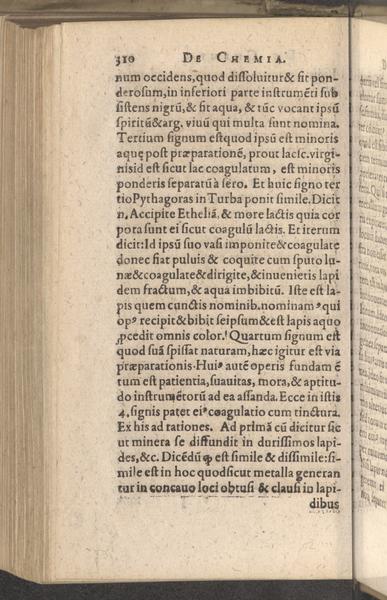 310 DE CHEMIA.
num occidens, quod dissoluitur & fit pon-
derosum, in inferiori parte instrumēti sub
sistens nigrū, & fit aqua, & tūc vocant ipsū
spiritū & arg, viuū qui multa sunt nomina.
Tertium signum est quod ipsū est minoris
aquę post præparationē, prout lac sc. virgi-
nis id est sicut lac coagulatum, est minoris
ponderis separatū à sero. Et huic signo ter
tio Pythagoras in Turba ponit simile. Dicit
n. Accipite Etheliā. & more lactis quia cor
pora sunt ei sicut coagulū lactis. Et iterum
dicit: Id ipsū suo vasi imponite & coagulate
donec fiat puluis & coquite cum sputo lu-
næ & coagulate & dirigite, & inuenietis lapi
dem fractum, & aqua imbibitū. Iste est la-
pis quem cunctis nominib. nominamꝰ qui
opꝰ recipit & bibit seipsum & est lapis a quo
ꝓcedit omnis color. Quartum signum est
quod suā spissat naturam, hæc igitur est via
præparationis. Huiꝰ autē operis fundam ē
tum est patientia, suauitas, mora, & aptitu-
do instrumētorū ad ea assanda. Ecce in istis
4. signis patet eiꝰ coagulatio cum tinctura.
Ex his ad rationes. Ad primā cū dicitur sic
ut minera se diffundit in durissimos lapi-
des, &c. Dicēdū ꝙ est simile & dissimile: si-
mile est in hoc quod sicut metalla generan
tur in concauo loci obtusi & clausi in lapi-
dibus